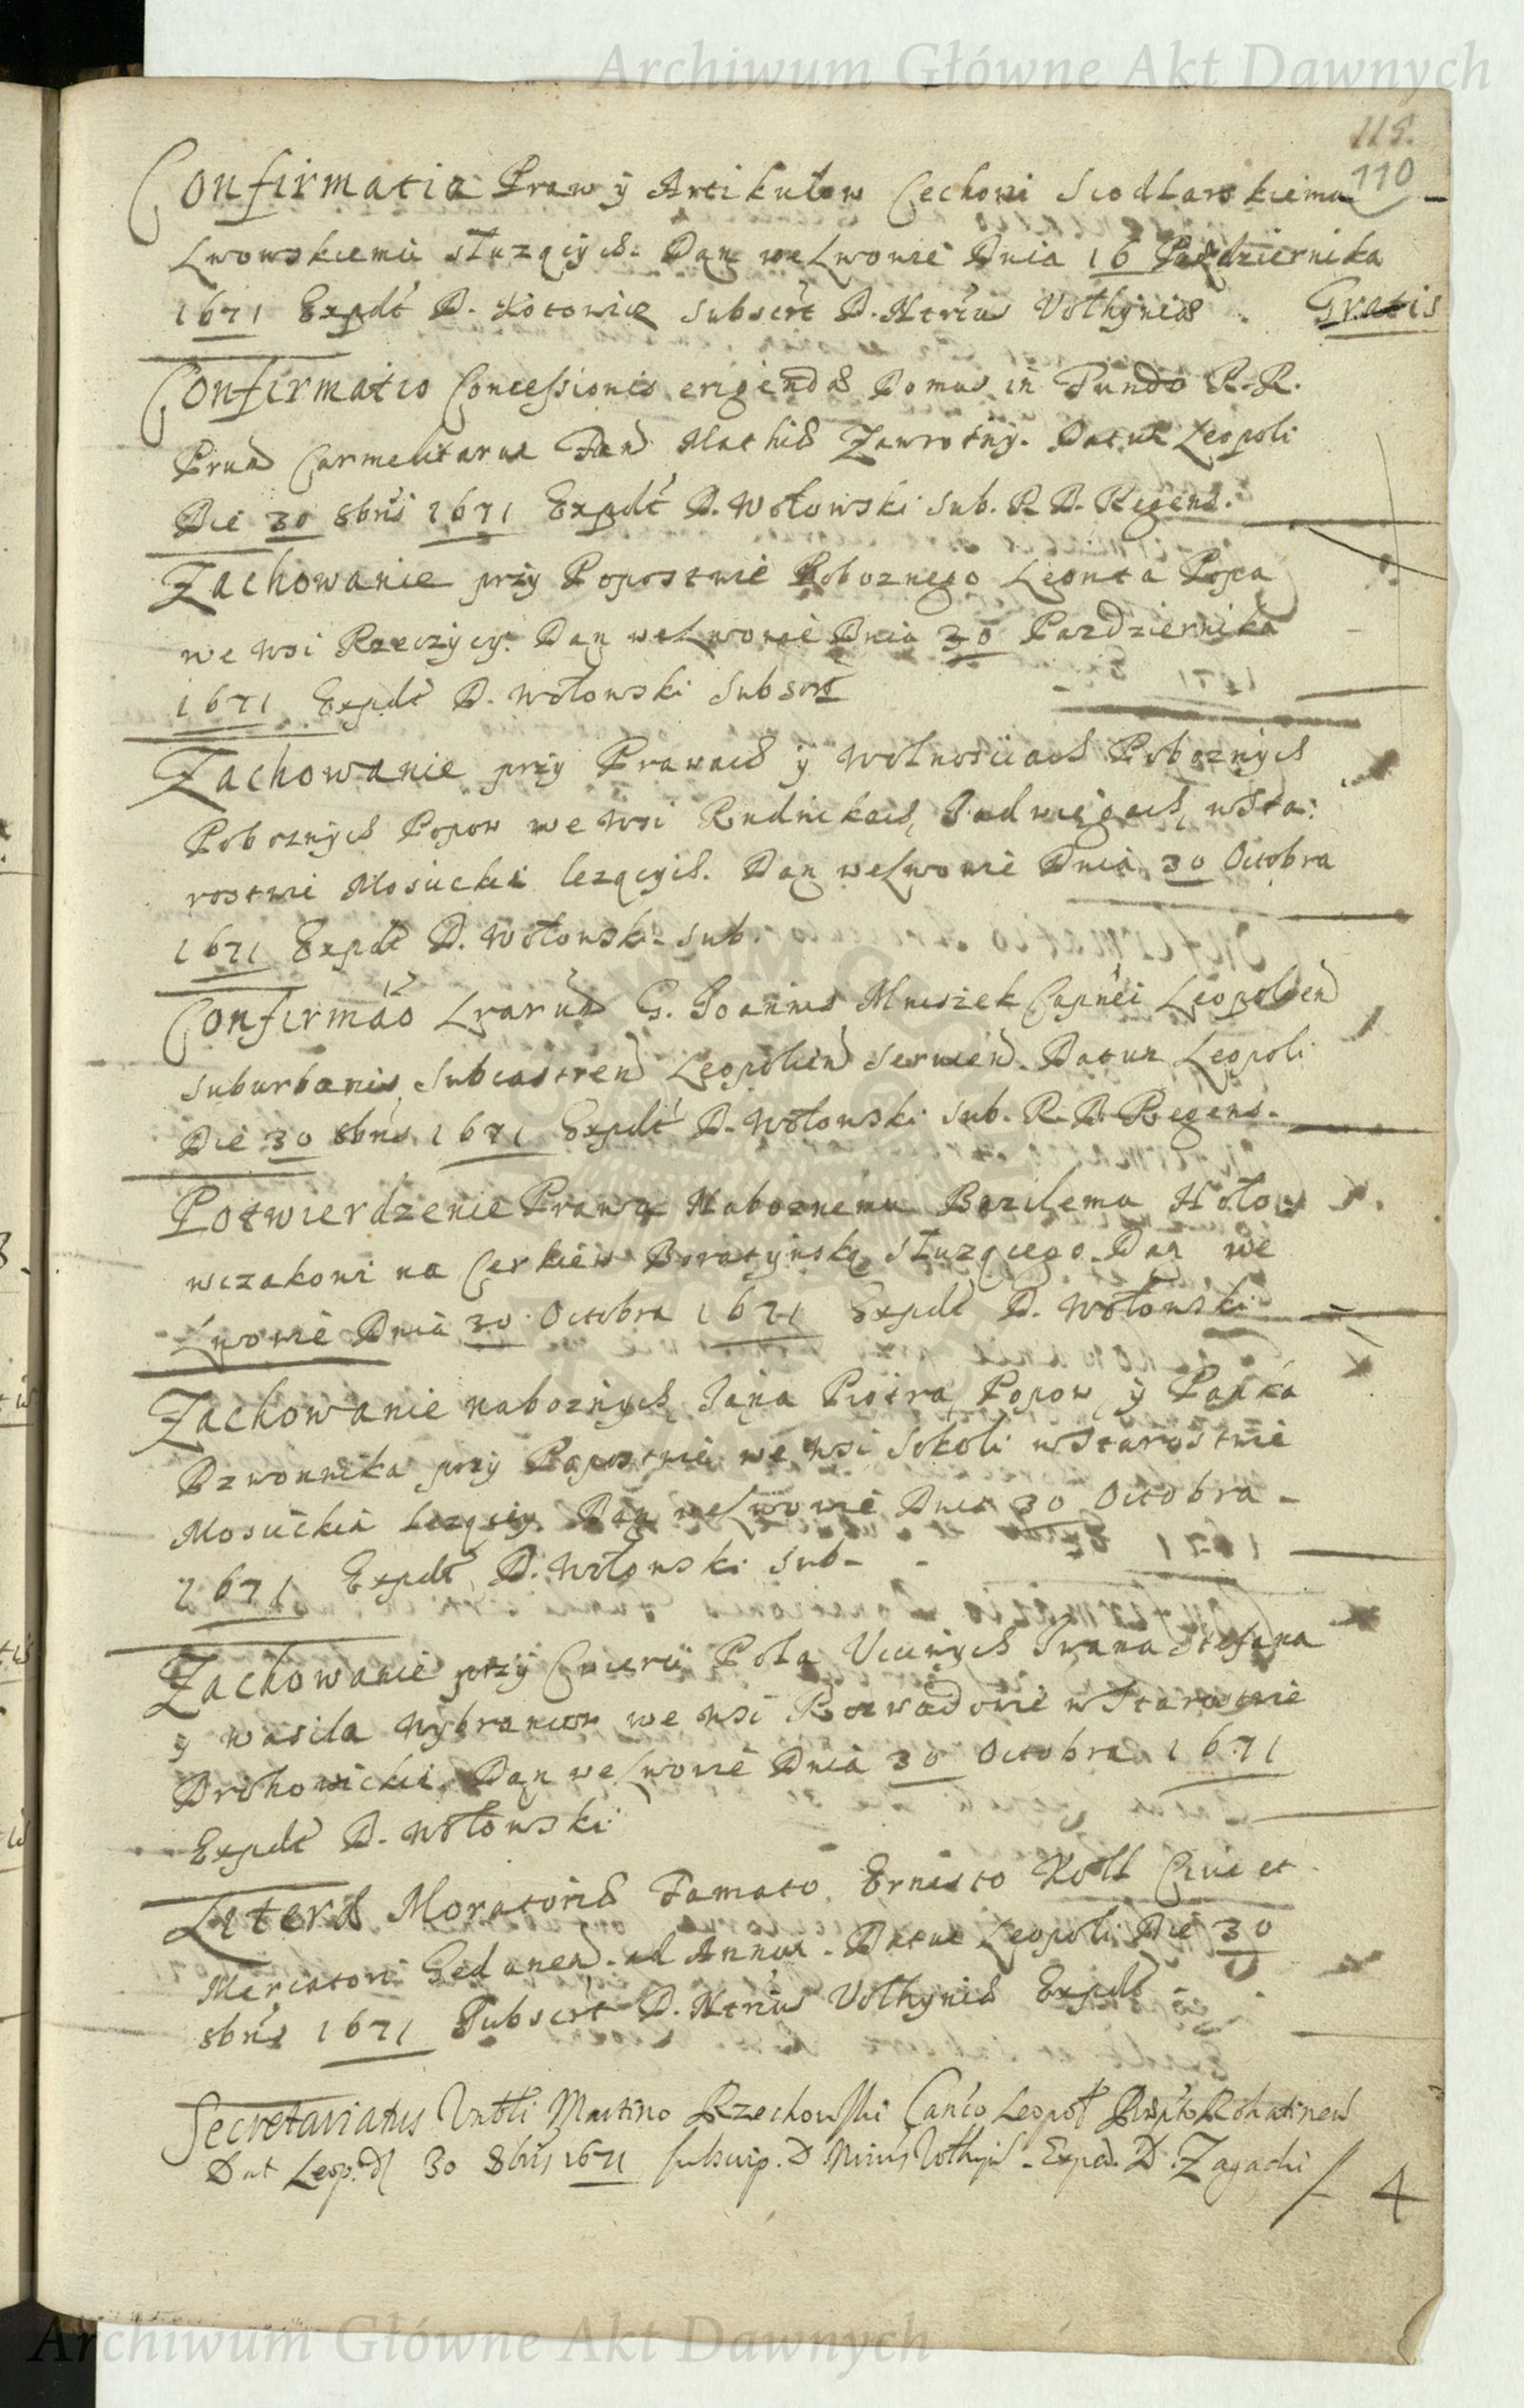 Archiwum Główne Akt Dawnych
115.
110
Confirmatia Praw ÿ Artikułow Cechowi Siodlarskiemu
Lwowskiemu słuzących. Dan we Lwowie Dnia 16 Pazdziernika
1671 Expdt D. Kotowicz subscrt D. Ntrius Volhyniæ. Gratis
Confirmatio Concessionis erigendæ Domus in Fundo R. R.
Prum Carmelitarum Fam Mathiæ Zawrotny. Datum Leopoli
Die 30 8bris 1671 Expdt D. Wołowski sub. R. D. Regens.
Zachowanie przy Popostwie Poboznego Leonta Popa
we wsi Rzeczycy. Dan we Lwowie Dnia 30 Pazdziernika
1671 Expdt D. Wołowski subscrt
Zachowanie przy Prawach ÿ Wolnosciach Poboznych
Poboznych Popow we wsi Rudnikach, Jadwigach, w Sta:
rostwie Mosticki lezących. Dan we Lwowie Dnia 30 Octobra
1671 Expdt D. Wołowski sub.
Confirmao Lrarum G. Joannis Mniszek Capnei Leopolien
suburbanis, subcastren Leopolien servien. Datum Leopoli
Die 30 8bris 1671 Expdt D. Wołowski sub. R. D. Regens.
Potwierdzenie Prawa Naboznemu Bazilemu Hoło
wczakowi na Cerkiew Boratynską słuzącego. Dan we
Lwowie Dnia 30 Octobra 1671 Expdt D. Wołowski
Zachowanie naboznych Jana Piotra Popow ÿ Pańka
Dzwonnika przy Popostwie we wsi Sokoli w Starostwie
lezący. Dan we Lwowie Dnia 30 Octobra
1671 Expdt D. Wołowski sub
Zachowanie przy Cwierci Pola Ucciwych Iwana Stefana
y Wasila Wybrancow we wsi Rozwadowie w Starostwie
Dan we Lwowie Dnia 30 Octobra 1671
Expdt D. Wołowski
Literæ Moratoriæ Famato Ernesto Koll Civi et
Mercatori Gedanen. ad Annum. Datum Leopoli Die 30
8bris 1671 Subscrt D. Ntrius Volhyniæ Expdt
Secretariatus Martino Rzechowski Leopol Rohatinen
Dat Leop. d 30 8bris 1671 subscrip. D Volhyn. Exped. D. Zagacki 4
Archiwum Główne Akt Dawnych